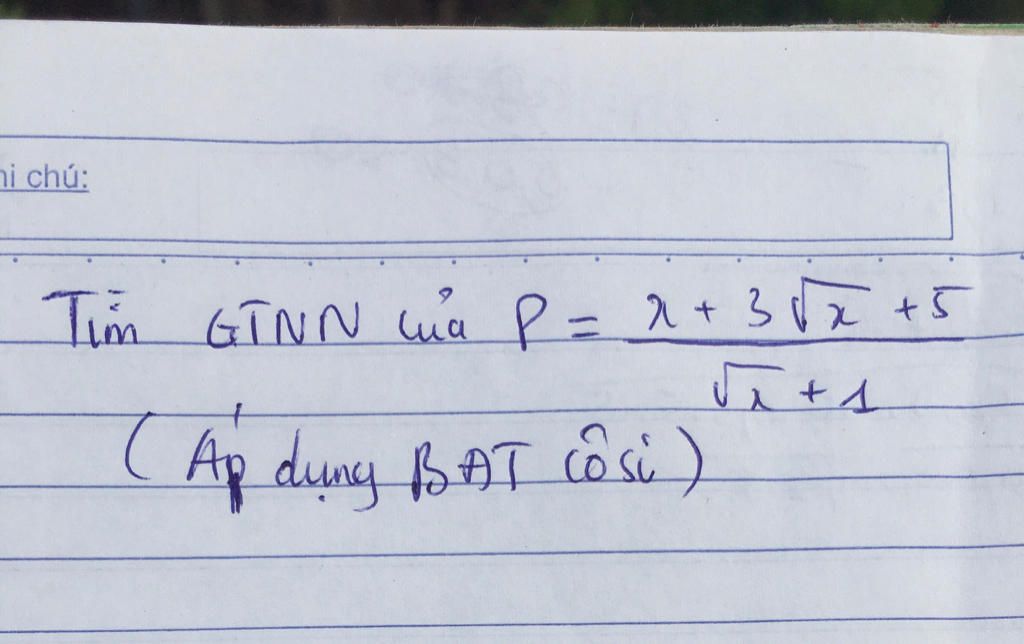 hi chú:
Tìm GTNN của P = \frac{x + 3\sqrt{x} + 5}{\sqrt{x} + 1}
(Áp dụng BĐT Côsi)